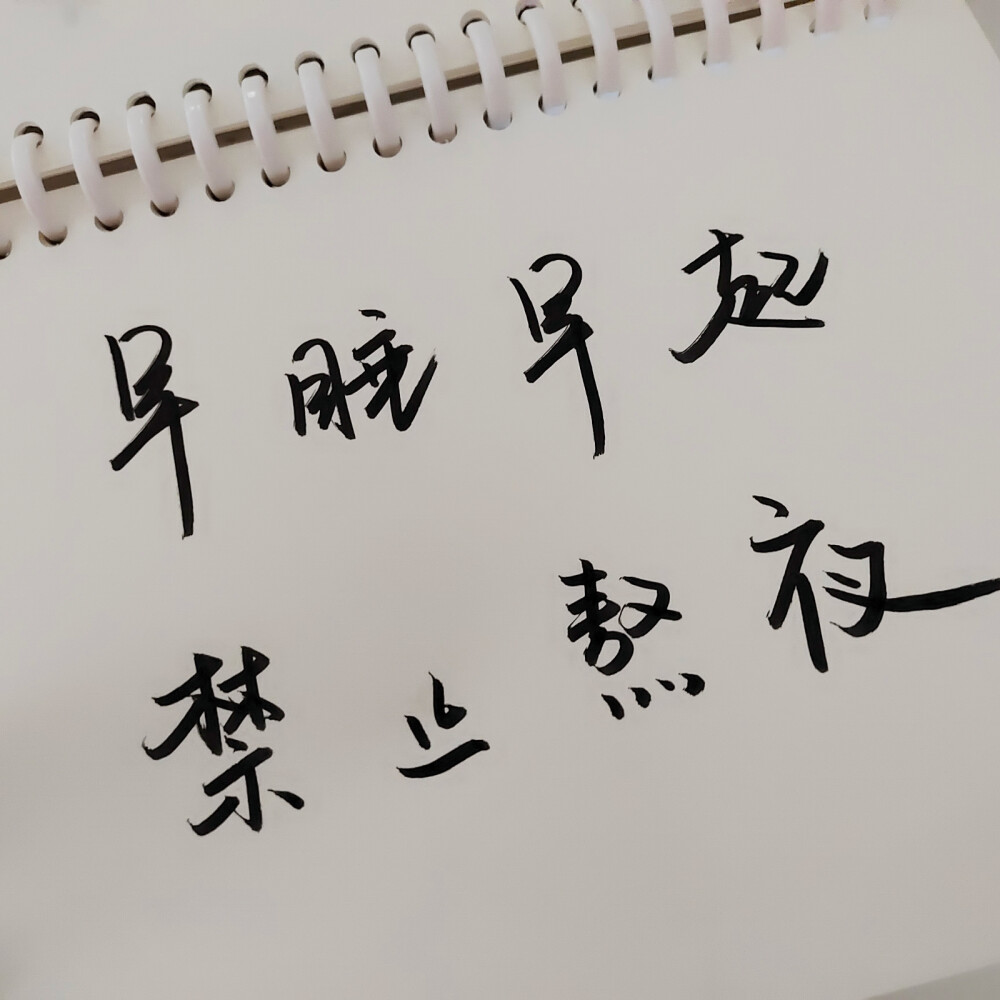 早睡早起
禁止熬夜